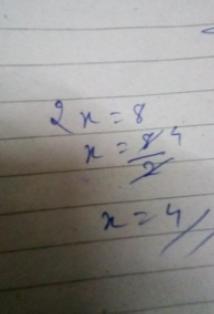 2x = 8
x = 8/2 4
x = 4//